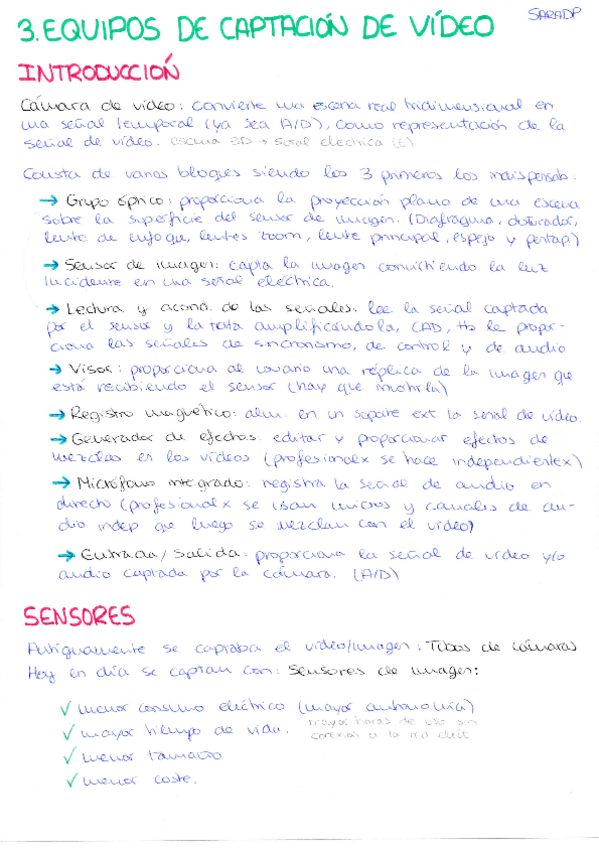 SARADP
3. EQUIPOS DE CAPTACIÓN DE VÍDEO
INTRODUCCIÓN
Cámara de vídeo: convierte una escena real tridimensional en
una señal temporal (ya sea A/D), como representación de la
señal de vídeo. escena 3D → señal eléctrica (t)
Consta de varios bloques siendo los 3 primeros los indispensab.:
→ Grupo óptico: proporciona la proyección plana de una escena
sobre la superficie del sensor de imagen. (Diafragma, obturador,
lente de enfoque, lentes zoom, lente principal, espejo y pentap.)
→ Sensor de imagen: capta la imagen convirtiendo la luz
incidente en una señal eléctrica.
→ Lectura y acond. de las señales: lee la señal captada
por el sensor y la trata amplificándola, CAD, tto le propor-
ciona las señales de sincronismo, de control y de audio
→ Visor: proporciona al usuario una réplica de la imagen que
está recibiendo el sensor (hay que
→ Registro magnético: alm. en un soporte ext la señal de vídeo.
→ Generador de efectos: editar y proporcionar efectos de
mezclas en los vídeos (profesionalx se hace independientex)
→ Micrófono integrado: registra la señal de audio en
directo (profesionalx se usan micros y canales de au-
dio indep que luego se mezclan con el vídeo)
→ Entrada/Salida: proporciona la señal de vídeo y/o
audio captada por la cámara. (A/D)
SENSORES
Antiguamente se captaba el vídeo/imagen: Tubos de cámaras
Hoy en día se captan con: Sensores de imagen:
✓ menor consumo eléctrico (mayor autonomía)
mayor horas de uso sin
✓ mayor tiempo de vida. conexión a la red eléct
✓ menor tamaño
✓ menor coste.